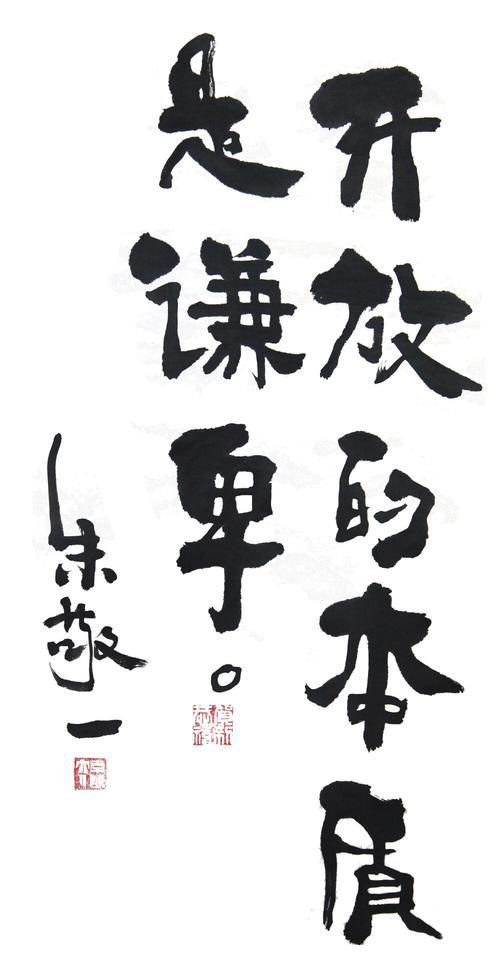 开放的本质
是谦卑。
朱敬一